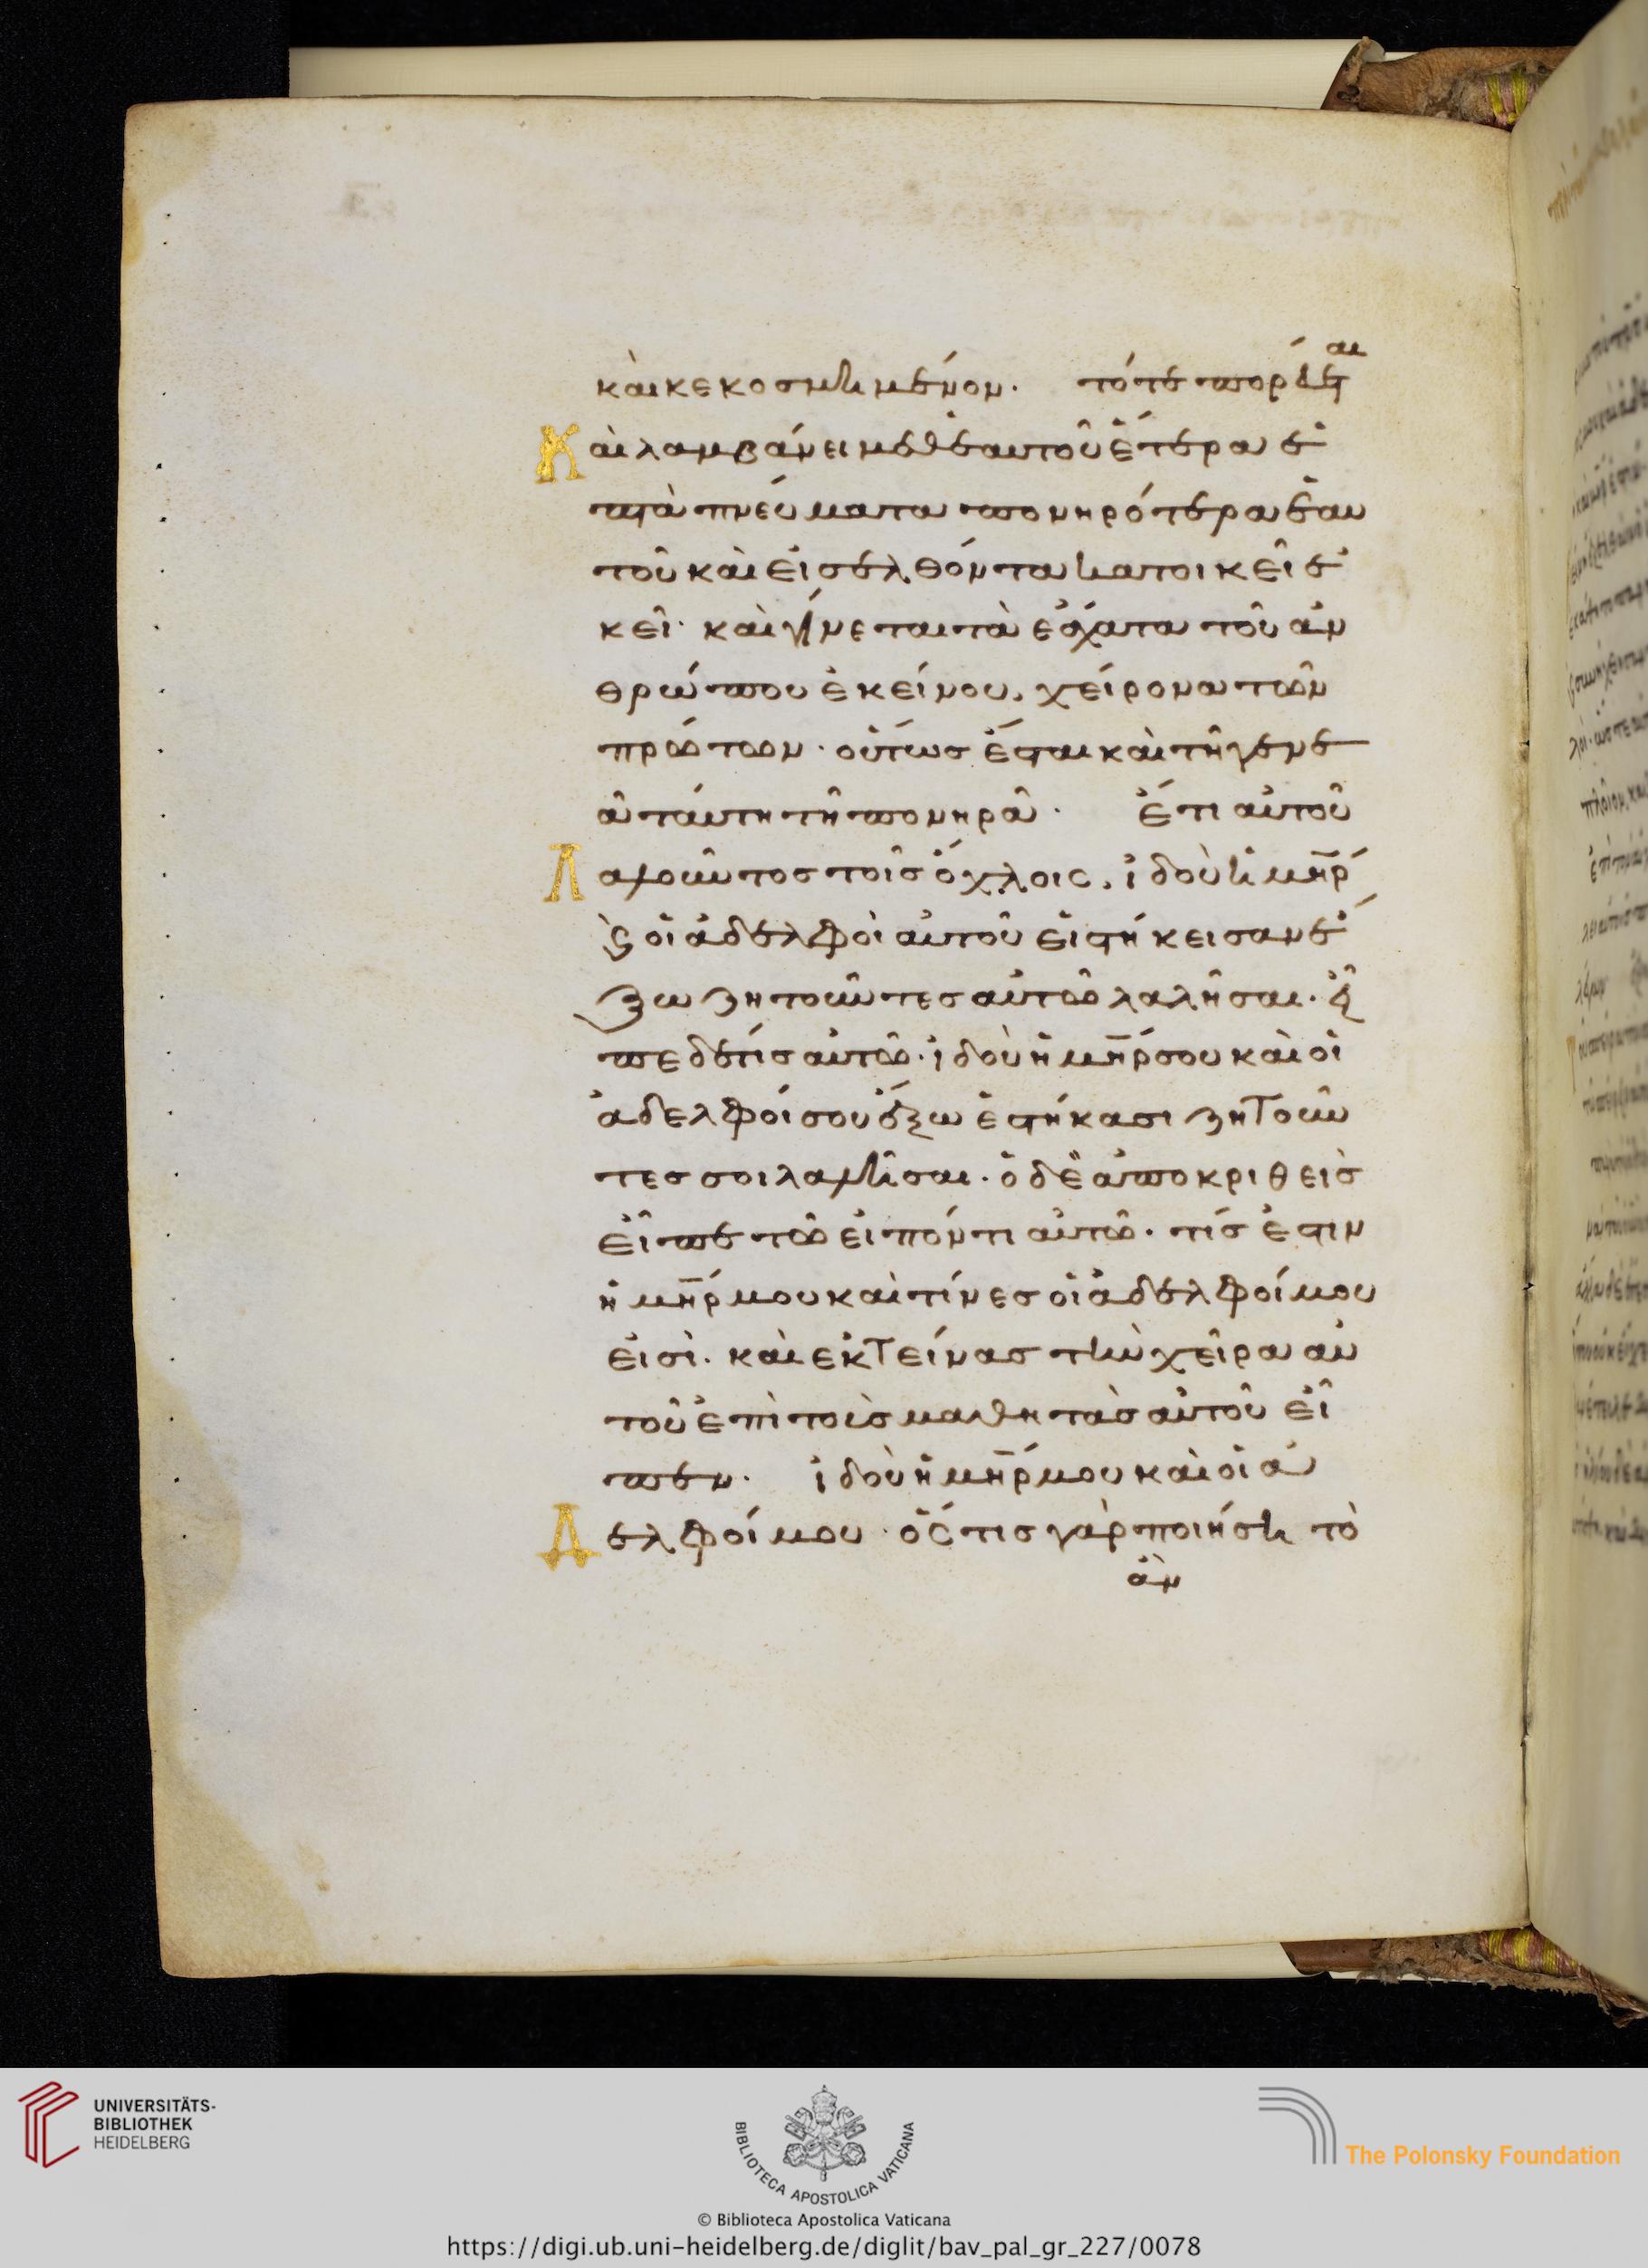 καὶ κεκοσμημένον. τότε πορεύεται
Καὶ λαμβάνει μεθ' ἑαυτοῦ ἕτερα ἑ
πτὰ πνεύματα πονηρότερα ἑαυ
τοῦ καὶ εἰσελθόντα κατοικεῖ ἐ
κεῖ· καὶ γίνεται τὰ ἔσχατα τοῦ ἀν
θρώπου ἐκείνου, χείρονα τῶν
πρώτων· οὕτως ἔσται καὶ τῆ γενε
ᾶ ταύτη τῆ πονηρᾶ· Ἔτι αὐτοῦ
Λαλοῦντος τοῖς ὄχλοις, ἰδοὺ ἡ μηρ
ϗ οἱ ἀδελφοὶ αὐτοῦ εἱστήκεισαν ἔ
ξω ζητοῦντες αὐτῶ λαλῆσαι· εἶ
πε δέ τις αὐτῶ· ἰδοὺ ἡ μηρ σου καὶ οἱ
ἀδελφοί σου ἔξω ἑστήκασι ζητοῦν
τες σοι λαλῆσαι· ὁ δὲ ἀποκριθεὶς
εἶπε τῶ εἰπόντι αὐτῶ· τίς ἐστιν
ἡ μηρ μου καὶ τίνες οἱ ἀδελφοί μου
εἰσὶ· καὶ ἐκτείνας τὴν χεῖρα αὐ
τοῦ ἐπὶ τοὺς μαθητὰς αὐτοῦ εἶ
πεν· ἰδοὺ ἡ μηρ μου καὶ οἱ ἀ
Δελφοί μου· ὅστις γὰρ ποιήση τὸ
ἂν
UNIVERSITÄTS-
BIBLIOTHEK
HEIDELBERG
BIBLIOTECA APOSTOLICA VATICANA
The Polonsky Foundation
© Biblioteca Apostolica Vaticana
https://digi.ub.uni-heidelberg.de/diglit/bav_pal_gr_227/0078